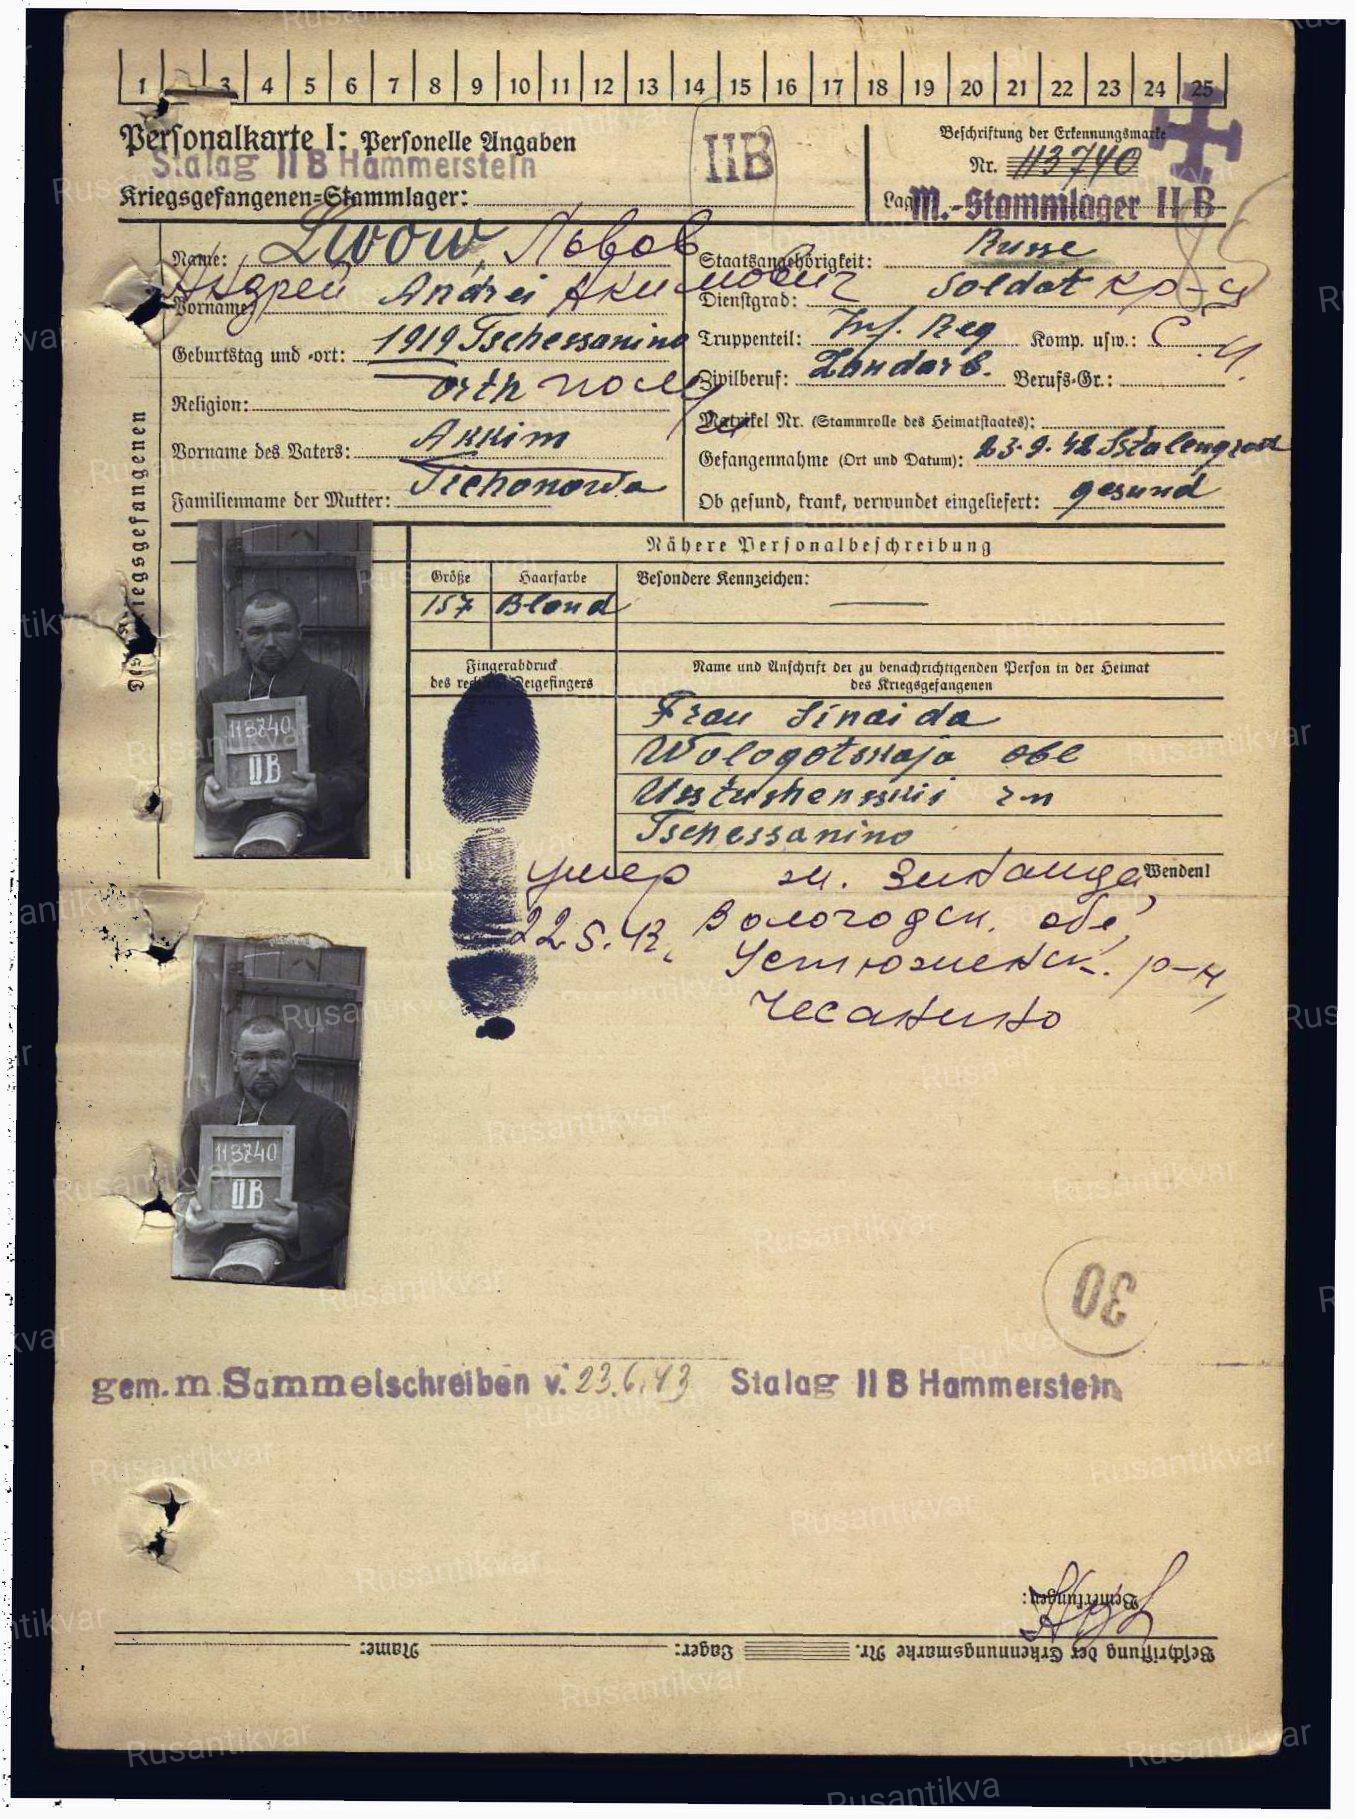 1 3 4 5 6 7 8 9 10 11 12 13 14 15 16 17 18 19 20 21 22 23 24 25
Personalkarte I: Personelle Angaben
Stalag II B Hammerstein
Kriegsgefangenen-Stammlager:
IIB
Beschriftung der Erkennungsmarke
Nr. 113740
Lager: M.-Stammlager II B
Des Kriegsgefangenen
Name: Lwow, Львов
Vorname: Андрей Andrei Акимович
Geburtstag und -ort: 1919 Tschessanino
Religion: orth
Vorname des Vaters: Akkim
Familienname der Mutter: Tichonowa
Staatsangehörigkeit: Russe
Dienstgrad: Soldat кр-ц
Truppenteil: Inf. Reg Komp. usw.:
Zivilberuf: Landarb. Berufs-Gr.:
Matrikel Nr. (Stammrolle des Heimatstaates):
Gefangennahme (Ort und Datum): 23.9.42 Sstalengrad
Ob gesund, krank, verwundet eingeliefert: gesund
Nähere Personalbeschreibung
Größe Haarfarbe Besondere Kennzeichen:
157 Blond
Fingerabdruck
des rechten Zeigefingers
Name und Anschrift der zu benachrichtigenden Person in der Heimat
des Kriegsgefangenen
Frau Sinaida
Wologotskaja obl
Usstushenskii rn
Tschessanino
Wenden!
113740
IIB
умер ж. Зинаида
22.5.43, Вологодск. обл,
Устюженск. р-н,
Чесанино
113740
IIB
30
gem. m Sammelschreiben v. 23.6.43 Stalag II B Hammerstein
Bemerkungen:
Beschriftung der Erkennungsmarke Nr. Lager: Name:
Rusantikvar